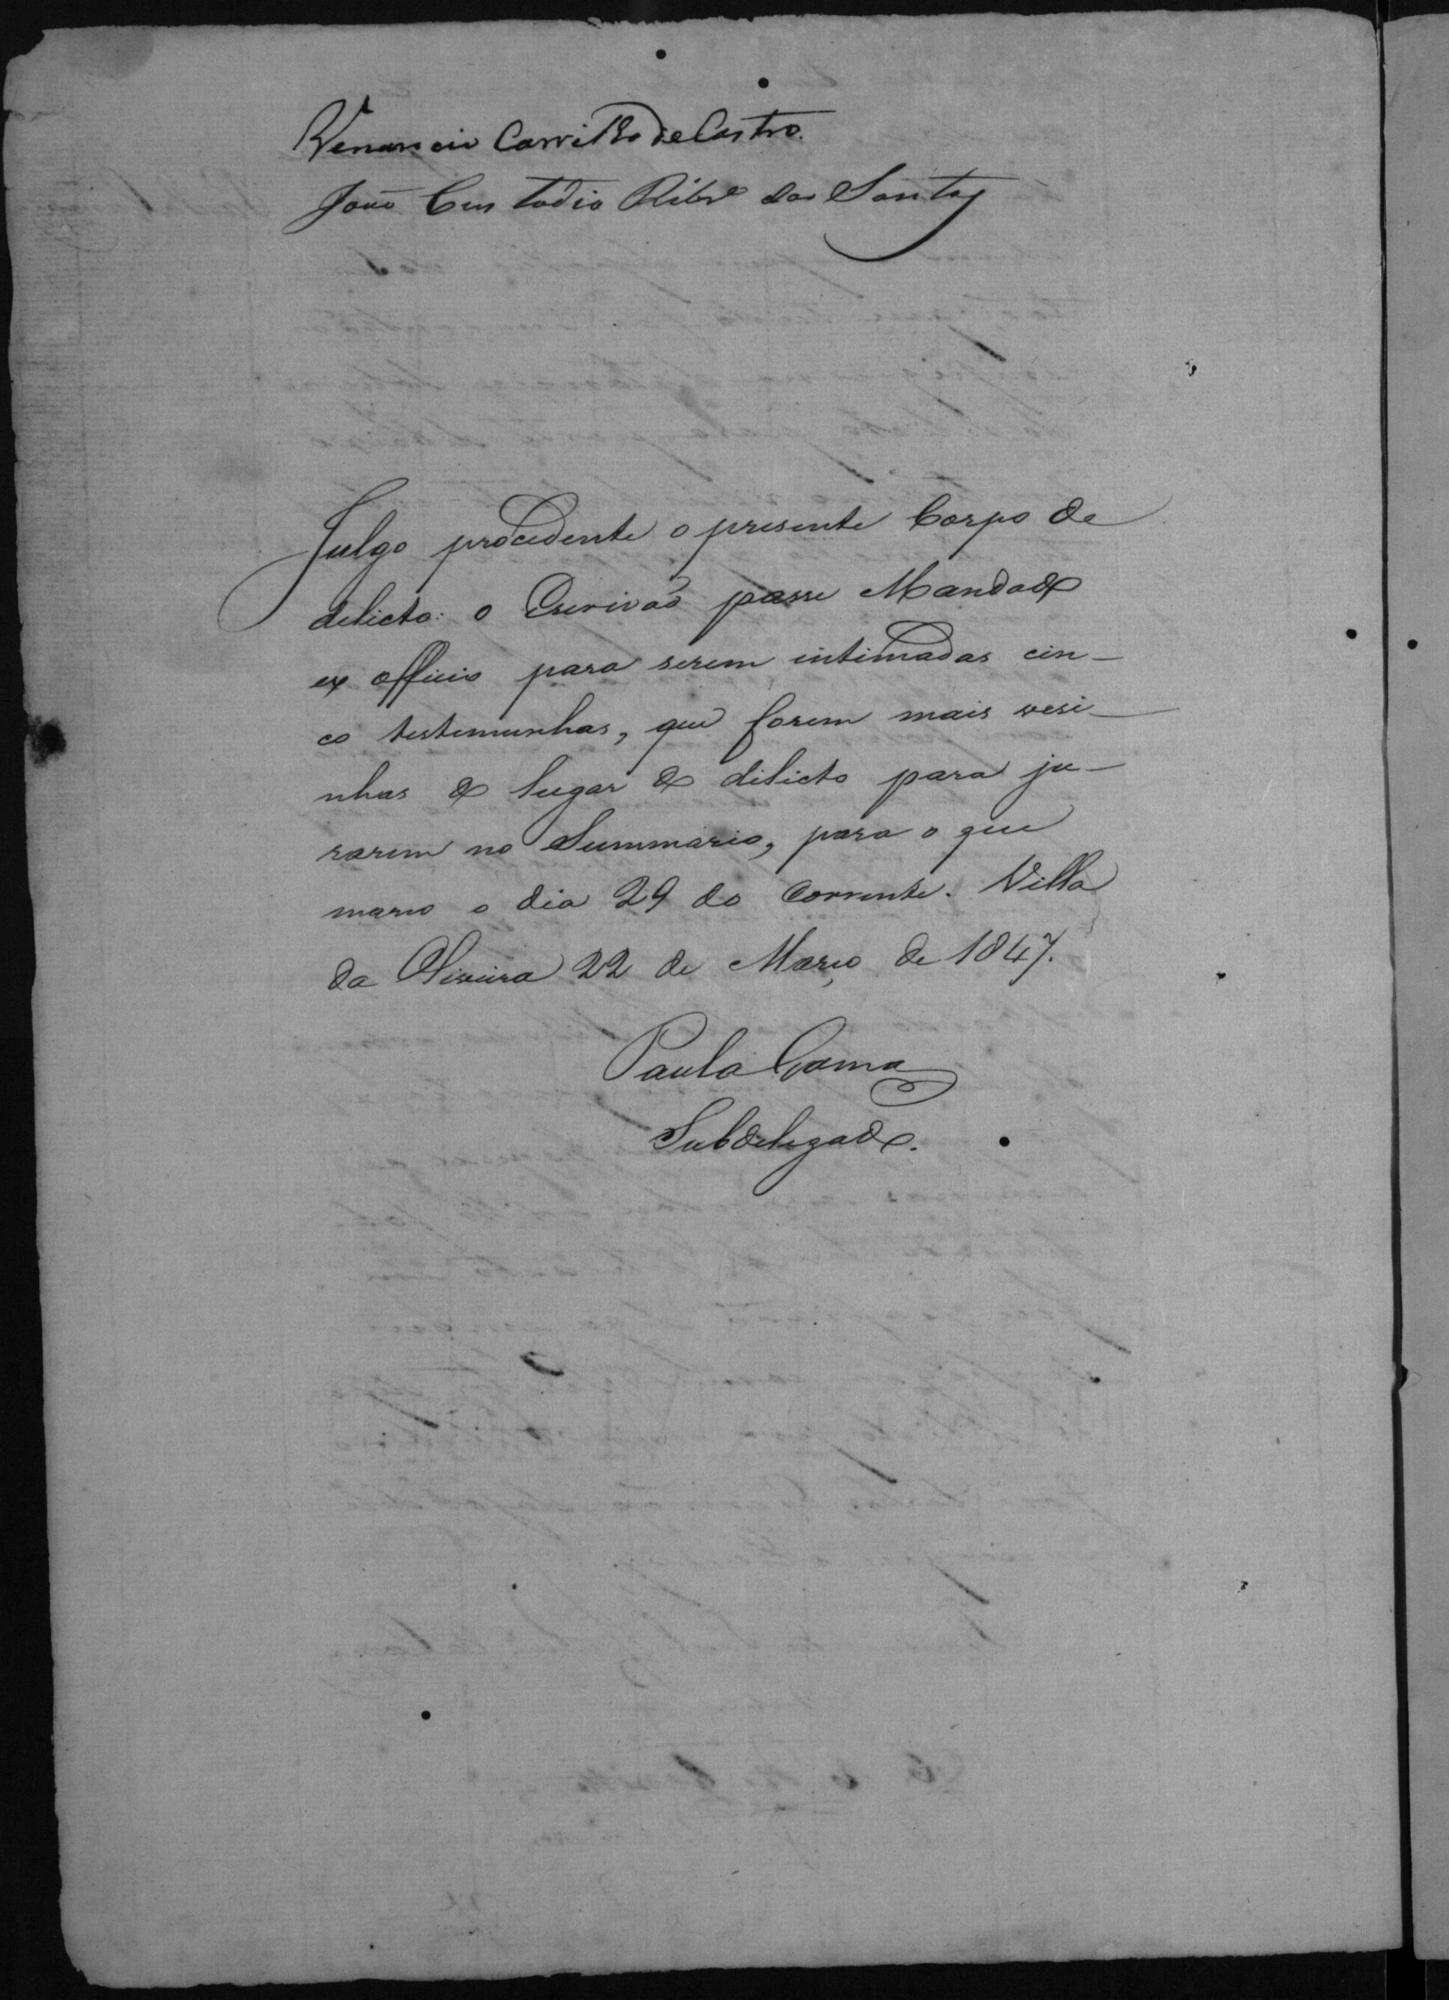 Venancio Carrilho de Castro.
João Custodio Ribr.º dos Santos
Julgo procedente o presente Corpo de
delicto: o Escrivaõ passe Mandado
ex officio para serem intimadas cin-
co testemunhas, que forem mais vesi-
nhas do lugar do dilicto para ju-
rarem no Summario, para o que
marco o dia 29 do Corrente. Villa
da Oliveira 22 de Março de 1847.
Paula Gama
Subdelegado.